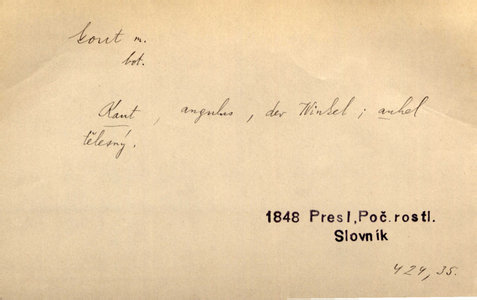 kout m.
bot.
Kaut, angulus, der Winkel; auhel
tělesný.
1848 Presl, Poč. rostl.
Slovník
424, 35.